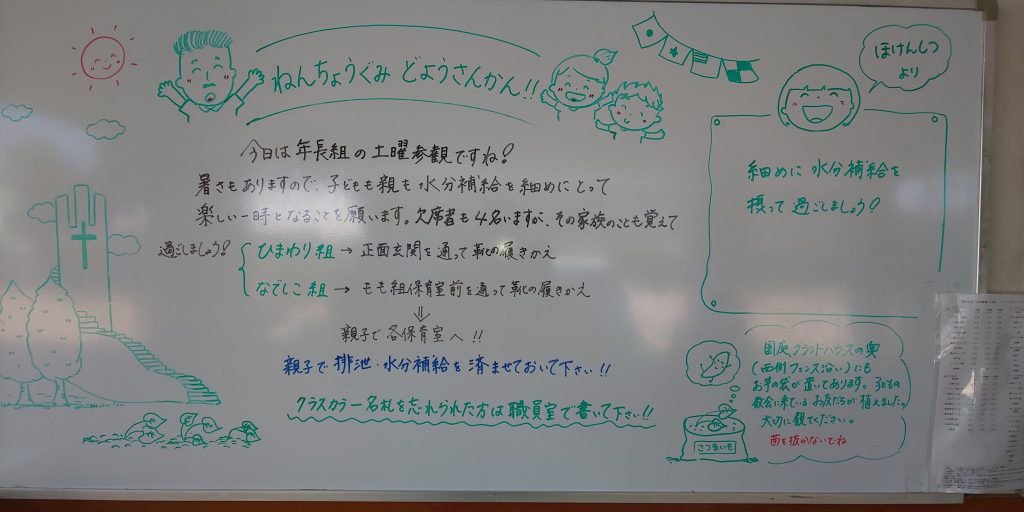 ねんちょうぐみ どようさんかん!!
今日は年長組の土曜参観ですね!
暑さもありますので、子どもも親も水分補給を細めにとって
楽しい一時となることを願います。欠席者も4名いますが、その家族のことも覚えて
過ごしましょう!
ひまわり組 → 正面玄関を通って靴の履きかえ
なでしこ組 → もも組保育室前を通って靴の履きかえ
⇓
親子で各保育室へ!!
親子で排泄・水分補給を済ませておいて下さい!!
クラスカラー名札を忘れられた方は職員室で書いて下さい!!
ほけんしつ
より
細めに水分補給を
摂って過ごしましょう!
園庭、グランドハウスの奥
(西側フェンス沿い)にも
お芋の袋が置いてあります。子どもの
教会に来ているお友だちが植えました。
大切に観てください。
苗を抜かないでね
さつまいも